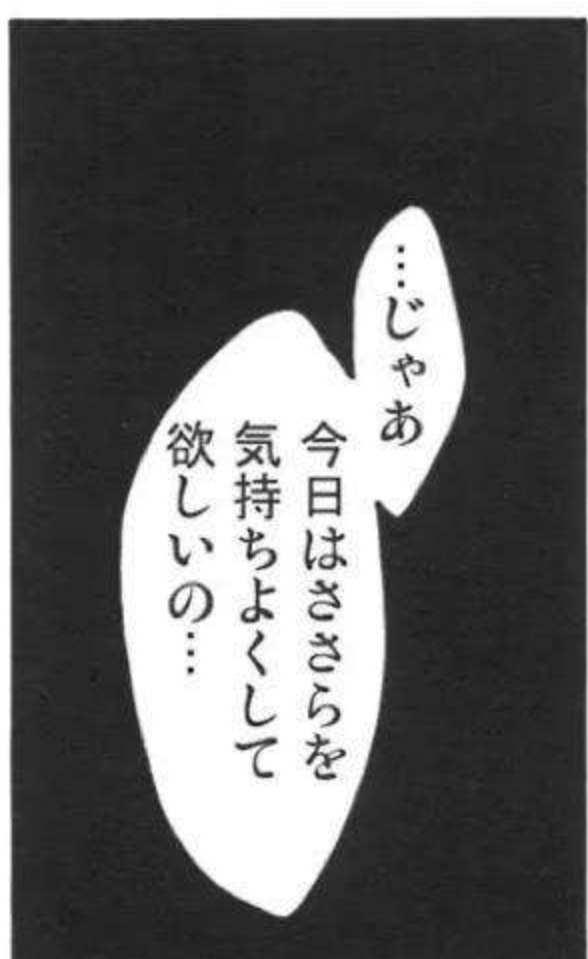 …じゃあ
今日はささらを
気持ちよくして
欲しいの…